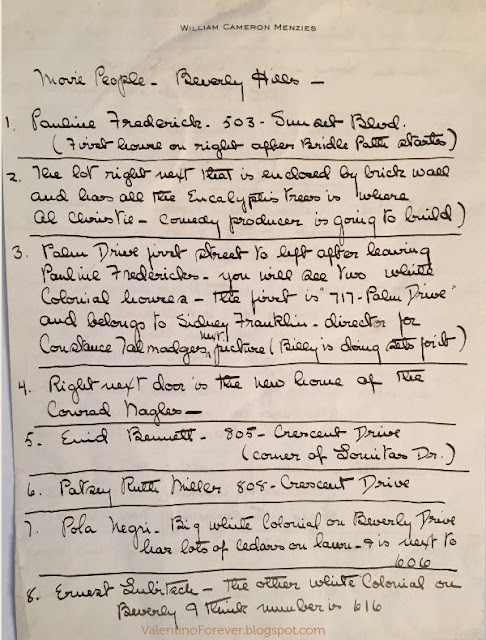 WILLIAM CAMERON MENZIES
Movie People - Beverly Hills -
1. Pauline Frederick - 503 - Sunset Blvd.
(First house on right after Bridle Path starts)
2. The lot right next that is enclosed by brick wall
and has all the Eucalyptis trees is where
Al Christie - comedy producer is going to build)
3. Palm Drive first street to left after leaving
Pauline Fredericks - you will see two white
Colonial houses - the first is "717 - Palm Drive"
and belongs to Sidney Franklin - director for
Constance Talmadges next picture (Billy is doing sets for it)
4. Right next door is the new home of the
Conrad Nagles -
5. Enid Bennett - 805 - Crescent Drive
(corner of Lomitas Dr.)
6. Patsey Ruth Miller 808 - Crescent Drive
7. Pola Negri - Big white Colonial on Beverly Drive
has lots of cedars on lawn - & is next to
606
8. Ernest Lubitsch - The other white Colonial on
Beverly I think number is 616
ValentinoForever.blogspot.com